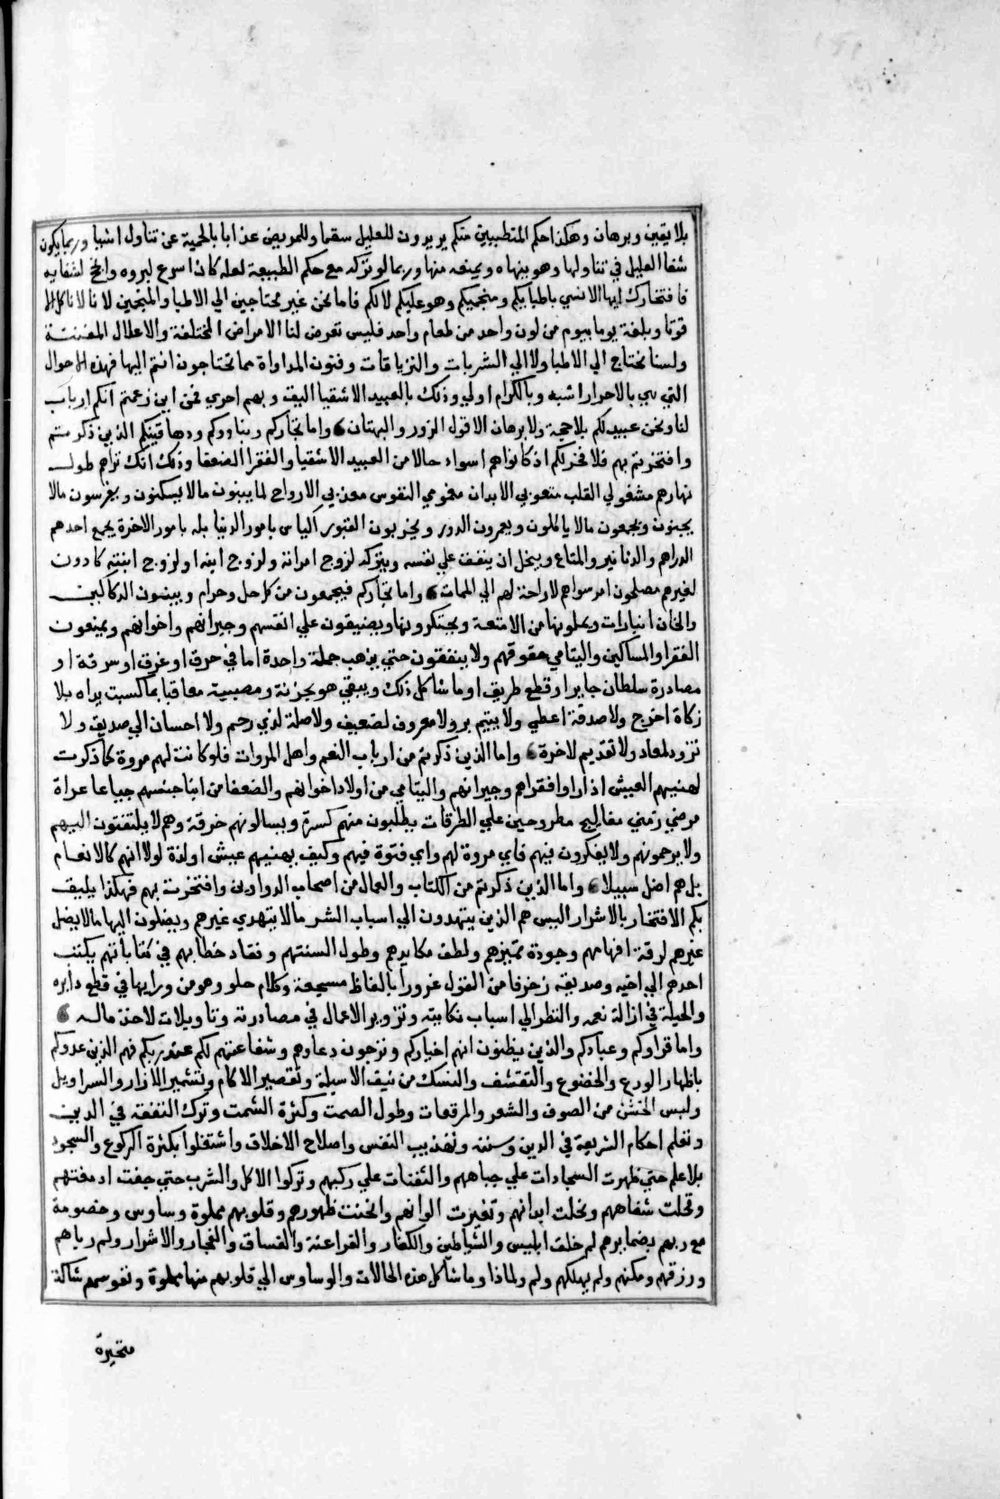 بلا يقين وبرهان وهكذا حكم المتطببين منكم يريدون للعليل سقما وللمريض عذابا بالحمية عن تناول اشيا وربما يكون
شفا العليل في تناولها وهو ينهاه ويمنعه منها وربما لو تركه مع حكم الطبيعة لعله كان اسرع لبروه وانجح لشفايه
فافتخارك ايها الانسي باطبايكم ومنجميكم وهو عليكم لا لكم فاما نحن غير محتاجين الي الاطبا والمنجمين لانا لا ناكل الا
قوتا وبلغة يوما بيوم من لون واحد من طعام واحد فليس تعرض لنا الامراض المختلفة والاعلال المفننة
ولسنا نحتاج الي الاطبا ولا الي الشربات والترياقات وفنون المداواة مما تحتاجون انتم اليها فهذه الاحوال
التي هي بالاحرار اشبه وبالكرام اولي وذلك بالعبيد الاشقيا اليق وبهم احري فمن اين زعمتم انكم ارباب
لنا ونحن عبيد لكم بلا حجة ولا برهان الا قول الزور والبهتان واما تجاركم وبناووكم ودهاقينكم الذين ذكرتم
وافتخرتم بهم فلا فخر لكم اذ كانوا هم اسواء حالا من العبيد الاشقيا والفقرا الضعفا وذلك انك تراهم طول
نهارهم مشغولي القلب متعوبي الابدان مغمومي النفوس معذبي الارواح لما يبنون ما لا يسكنون ويغرسون ما لا
يجنون ويجمعون ما لا ياكلون ويعمرون الدور ويخربون القبور اكياس بامور الدنيا بله بامور الاخرة يجمع احدهم
الدراهم والدنانير والمتاع ويبخل ان ينفق علي نفسه ويتركه لزوج امراته ولزوج ابنه او لزوج ابنته كادون
لغيرهم مصلحون امر سواهم لا راحة لهم الي الممات واما تجاركم فيجمعون من كل حل وحرام ويبنون الدكاكين
والخانات انبارات ويملونها من الامتعة ويحتكرونها ويضيقون علي انفسهم وجيرانهم واخوانهم ويمنعون
الفقرا والمساكين واليتامي حقوقهم ولا ينفقون حتي يذهب جملة واحدة اما في حرق او غرق او سرقة او
مصادرة سلطان جاير او قطع طريق او ما شاكل ذلك ويبقي هو بحزنه ومصيبته معاقبا بما كسبت يداه بلا
زكاة اخرج ولا صدقة اعطي ولا يتيم بر ولا معروف لضعيف ولا صلة لذي رحم ولا احسان الي صديق ولا
تزود لمعاد ولا تقديم لاخرة واما الذين ذكرتم من ارباب النعم واهل المروات فلو كانت لهم مروة كما ذكرت
لا يهنيهم العيش اذا راوا فقراهم وجيرانهم واليتامي من اولاد اخوانهم والضعفا من ابنا جنسهم جياعا عراة
مرضي زمني مفاليج مطروحين علي الطرقات يطلبون منهم كسرة ويسالونهم خرقة وهم لا يلتفتون اليهم
ولا يرحمونهم ولا يفكرون فيهم فاي مروة لهم واي فتوة فيهم وكيف يهنيهم عيش او لذة لولا انهم كالانعام
بل هم اضل سبيلا واما الذين ذكرتم من الكتاب والعمال من اصحاب الدواوين وافتخرت بهم فهكذا يليق
بكم الافتخار بالاشرار اليس هم الذين يتهدون الي اسباب الشر ما لا يتهدي غيرهم ويصلون اليها ما لا يصل
غيرهم لرقة افهامهم وجودة تميزهم ولطف مكايدهم وطول السنتهم ونفاد خطابهم في كتاباتهم يكتب
احدهم الي اخيه وصديقه زخرفا من القول غرورا بالفاظ مسجعة وكلام حلو وهو من ورايها في قطع دابره
والحيلة في ازالة نعمه والنظر الي اسباب نكايته وتزوير الاعمال في مصادرته وتاويلات لاخذ ماله
واما قراوكم وعبادكم والذين يظنون انهم اخياركم وترجون دعاوهم وشفاعتهم لكم عند ربكم فهم الذين غروكم
باظهار الورع والخضوع والتقشف والنسك من نتف الاسبلة وتقصير الاكام وتشمير الازار والسراويل
ولبس الخشن من الصوف والشعر والمرقعات وطول الصمت وكثرة السمت وترك التفقه في الدين
وتعلم احكام الشريعة في الدين وسننه وتهذيب النفس واصلاح الاخلاق واشتغلوا بكثرة الركوع والسجود
بلا علم حتي ظهرت السجادات علي جباههم والثفنات علي ركبهم وتركوا الاكل والشرب حتي جفت ادمغتهم
وقحلت شفاههم ونحلت ابدانهم وتغيرت الوانهم وانحنت ظهورهم وقلوبهم مملوة وساوس وخصومة
مع ربهم بضمايرهم لم خلق ابليس والشياطين والكفار والفراعنة والفساق والفجار والاشرار ولم رباهم
ورزقهم ومكنهم ولم يهلكهم ولم ولماذا وما شاكل هذه الحالات والوساوس التي قلوبهم منها مملوة ونفوسهم شاكة
متحيرة